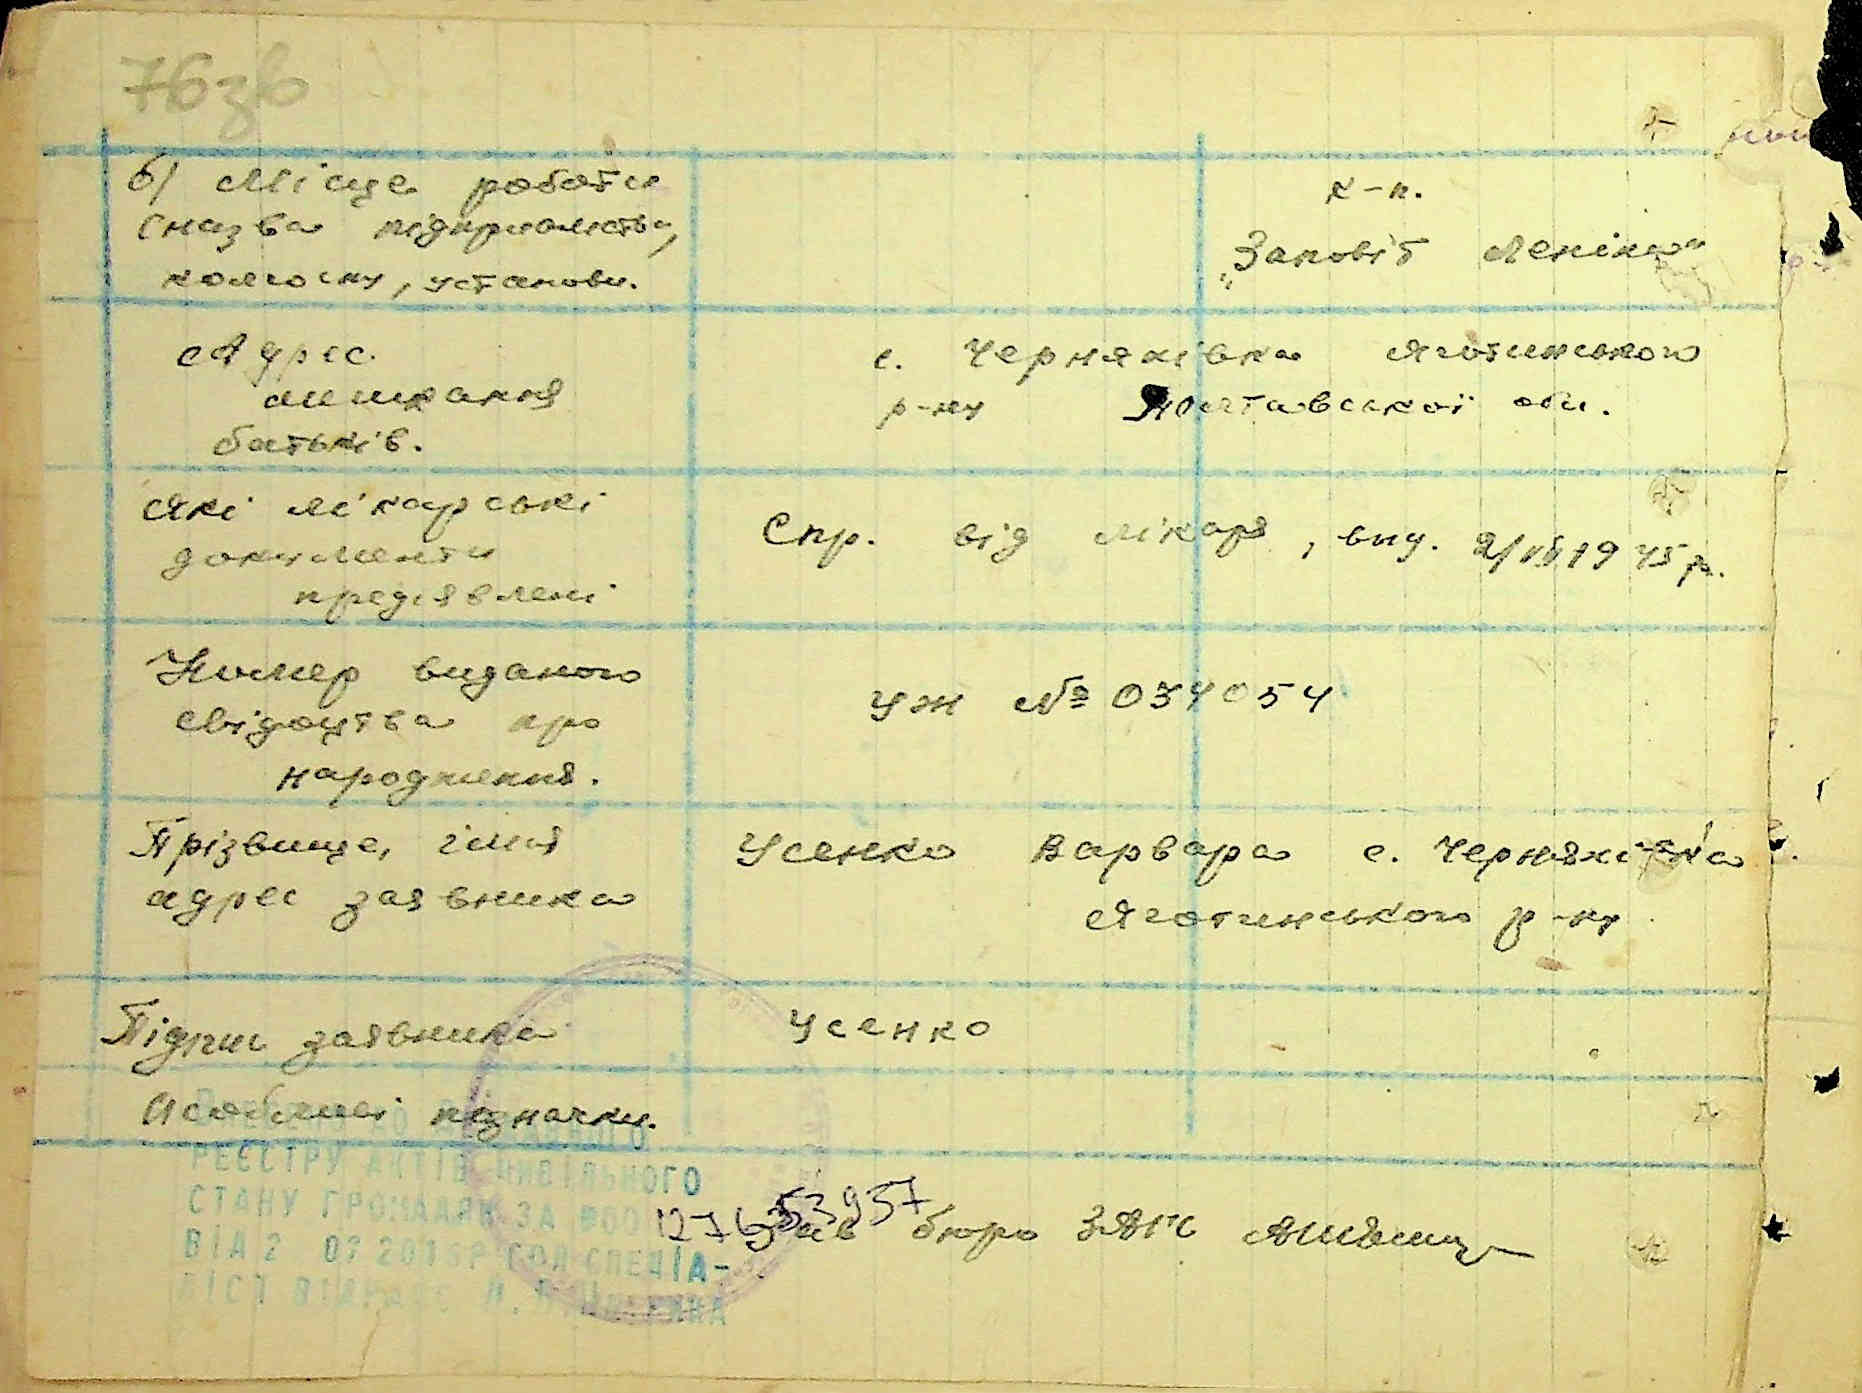 76зв
б) Місце роботи
(назва підприємства,
колгоспу, установи.
к-п.
"Заповіт Леніна"
Адрес
мешкання
батьків.
с. Черняхівка Яготинського
р-ну Полтавської обл.
Які лікарські
документи
предявлені
Спр. від лікаря, вид. 2/VII 1945 р.
Номер виданого
свідоцтва про
народження.
УЖ № 034054
Прізвище, імя
адрес заявника
Усенко Варвара с. Черняхівка
Яготинського р-ну
Підпис заявника
Усенко
Особливі позначки.
РЕЄСТРУ АКТІВ ЦИВІЛЬНОГО
СТАНУ ГРОМАДЯН ЗА №00
12763953957
ВІД 2 07 2016Р СПЕЦІА-
ЛІСТ
Зав бюро ЗАГС